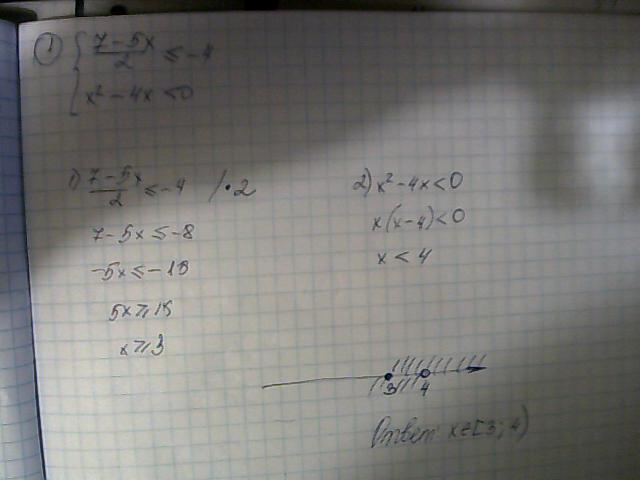 1) { (7-5x)/2 ≤ -4
{ x² - 4x < 0
1) (7-5x)/2 ≤ -4 /·2
7-5x ≤ -8
-5x ≤ -15
5x ≥ 15
x ≥ 3
2) x² - 4x < 0
x(x-4) < 0
x < 4
3 4
Ответ: x∈[3; 4)